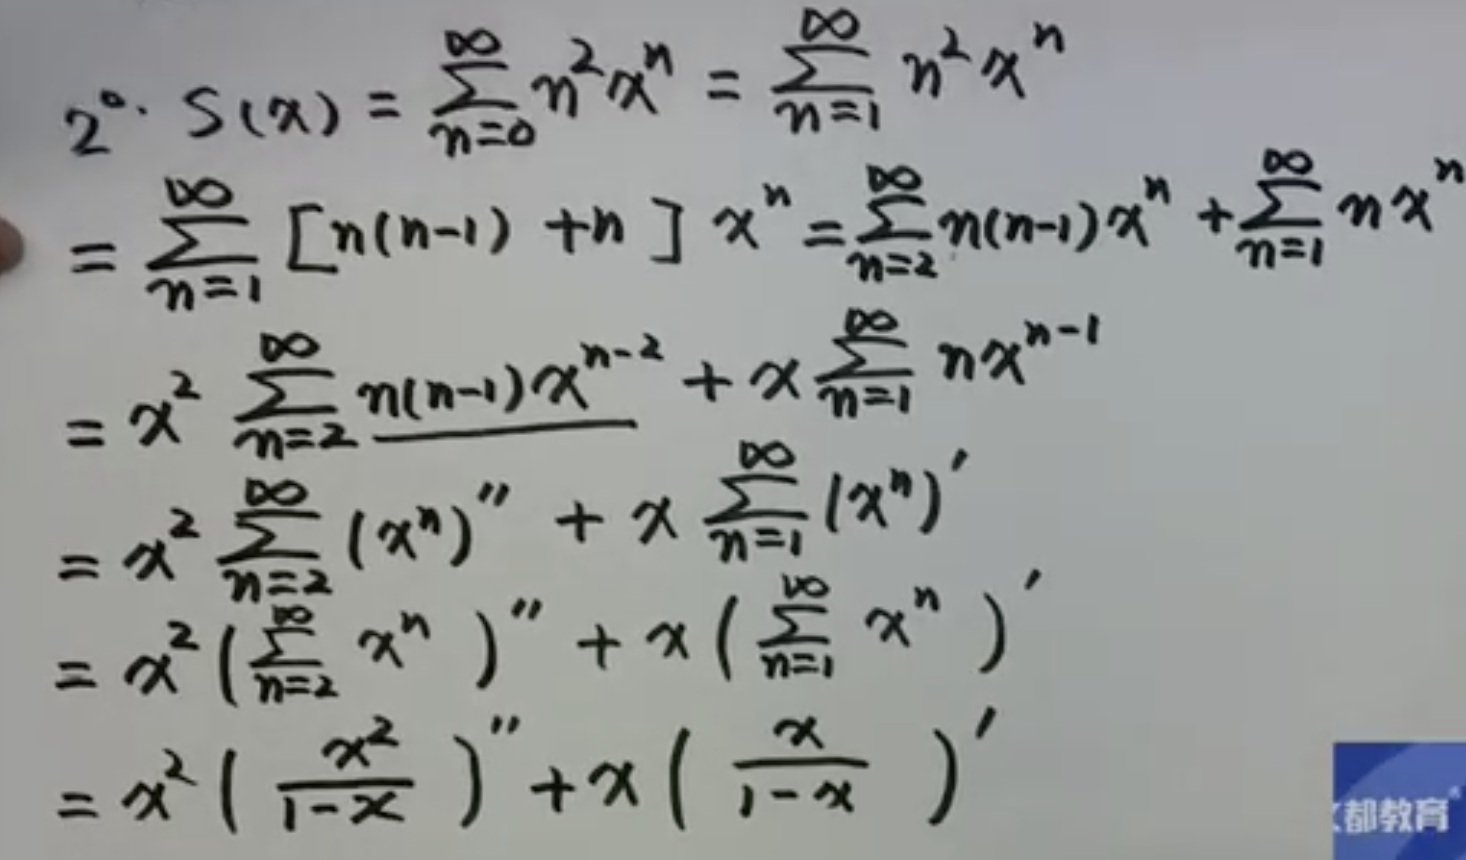 2°. S(x) = ∑_{n=0}^{∞} n²xⁿ = ∑_{n=1}^{∞} n²xⁿ
= ∑_{n=1}^{∞} [n(n-1) +n] xⁿ = ∑_{n=2}^{∞} n(n-1)xⁿ + ∑_{n=1}^{∞} nxⁿ
= x² ∑_{n=2}^{∞} n(n-1)x^{n-2} + x ∑_{n=1}^{∞} nx^{n-1}
= x² ∑_{n=2}^{∞} (xⁿ)'' + x ∑_{n=1}^{∞} (xⁿ)'
= x² (∑_{n=2}^{∞} xⁿ)'' + x (∑_{n=1}^{∞} xⁿ)'
= x² (x²/(1-x))'' + x (x/(1-x))'
都教育